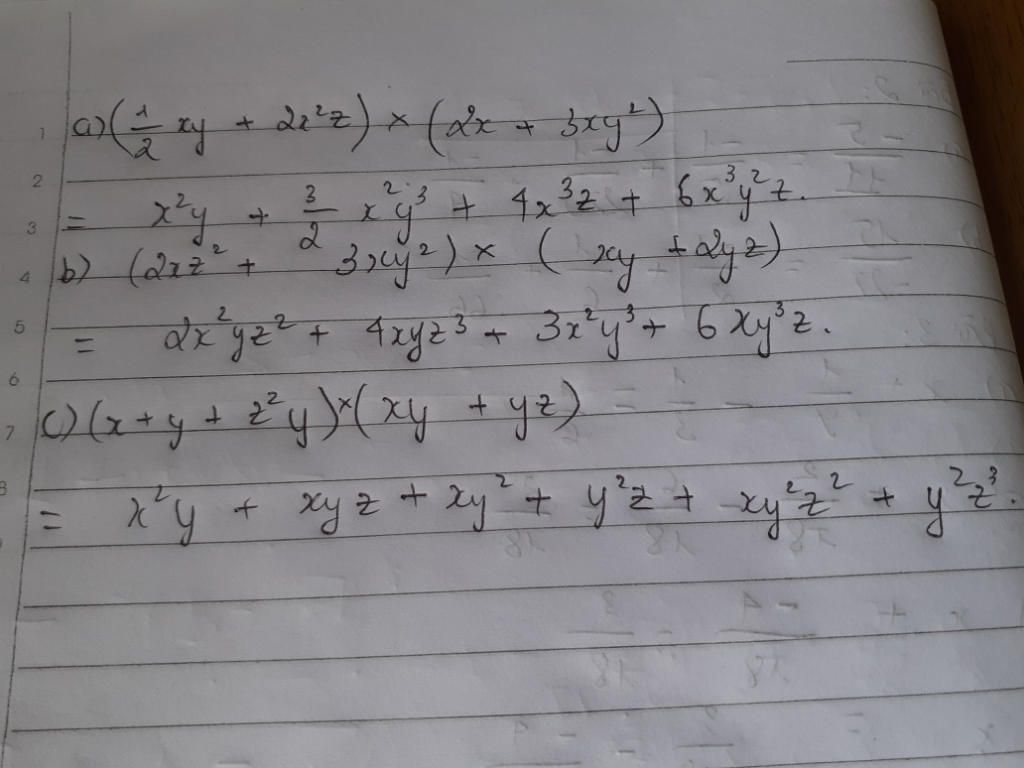 a) (1/2 xy + 2x²z) × (2x + 3xy²)
= x²y + 3/2 x²y³ + 4x³z + 6x³y²z.
b) (2xz² + 3xy²) × (xy + 2yz)
= 2x²yz² + 4xyz³ + 3x²y³ + 6xy³z.
c) (x + y + z²y) × (xy + yz)
= x²y + xyz + xy² + y²z + xy²z² + y²z³.